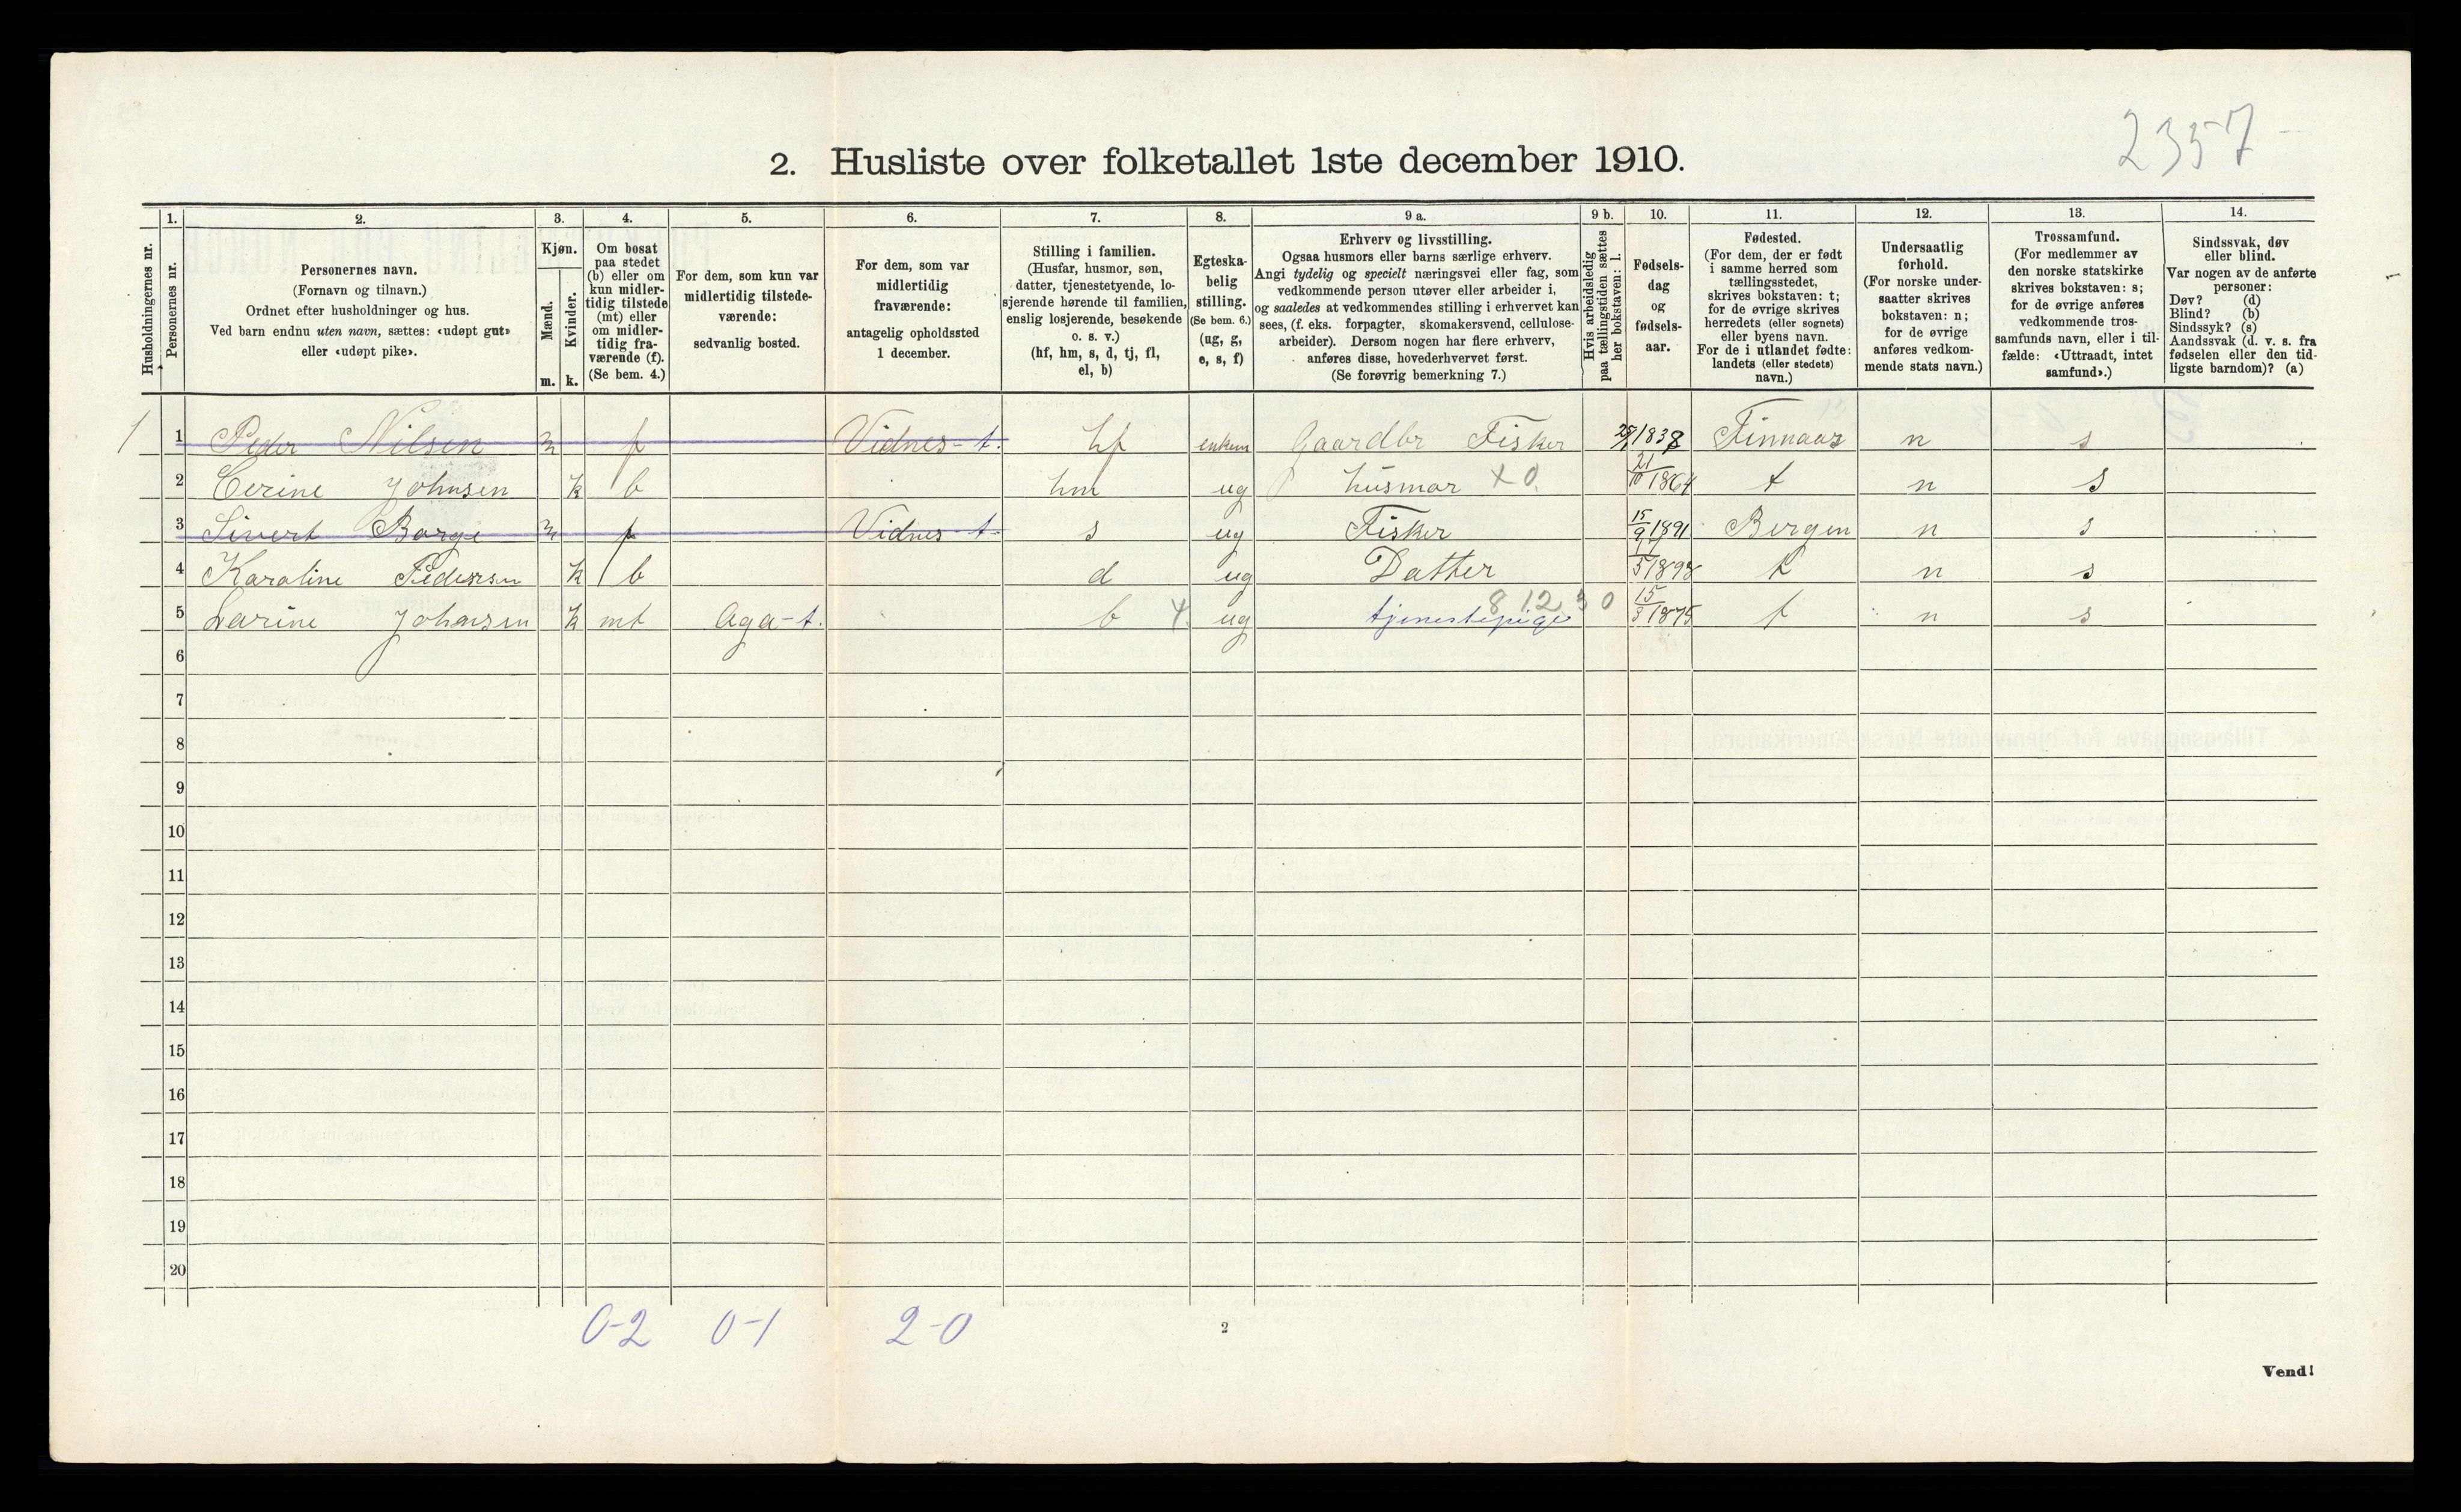 2357
2. Husliste over folketallet 1ste december 1910.
1. 2. 3. 4. 5. 6. 7. 8. 9 a. 9 b. 10. 11. 12. 13. 14.
Husholdningernes nr.
Personernes nr.
Personernes navn.
(Fornavn og tilnavn.)
Ordnet efter husholdninger og hus.
Ved barn endnu uten navn, sættes: «udøpt gut»
eller «udøpt pike».
Kjøn.
Mænd.
Kvinder.
m. k.
Om bosat
paa stedet
(b) eller om
kun midler-
tidig tilstede
(mt) eller
om midler-
tidig fra-
værende (f).
(Se bem. 4.)
For dem, som kun var
midlertidig tilstede-
værende:
sedvanlig bosted.
For dem, som var
midlertidig
fraværende:
antagelig opholdssted
1 december.
Stilling i familien.
(Husfar, husmor, søn,
datter, tjenestetyende, lo-
sjerende hørende til familien,
enslig losjerende, besøkende
o. s. v.)
(hf, hm, s, d, tj, fl,
el, b)
Egteska-
belig
stilling.
(Se bem. 6.)
(ug, g,
e, s, f)
Erhverv og livsstilling.
Ogsaa husmors eller barns særlige erhverv.
Angi tydelig og specielt næringsvei eller fag, som
vedkommende person utøver eller arbeider i,
og saaledes at vedkommendes stilling i erhvervet kan
sees, (f. eks. forpagter, skomakersvend, cellulose-
arbeider). Dersom nogen har flere erhverv,
anføres disse, hovederhvervet først.
(Se forøvrig bemerkning 7.)
Hvis arbeidsledig
paa tællingstiden sættes
her bokstaven: l.
Fødsels-
dag
og
fødsels-
aar.
Fødested.
(For dem, der er født
i samme herred som
tællingsstedet,
skrives bokstaven: t;
for de øvrige skrives
herredets (eller sognets)
eller byens navn.
For de i utlandet fødte:
landets (eller stedets)
navn.)
Undersaatlig
forhold.
(For norske under-
saatter skrives
bokstaven: n;
for de øvrige
anføres vedkom-
mende stats navn.)
Trossamfund.
(For medlemmer av
den norske statskirke
skrives bokstaven: s;
for de øvrige anføres
vedkommende tros-
samfunds navn, eller i til-
fælde: «Uttraadt, intet
samfund».)
Sindssvak, døv
eller blind.
Var nogen av de anførte
personer:
Døv? (d)
Blind? (b)
Sindssyk? (s)
Aandssvak (d. v. s. fra
fødselen eller den tid-
ligste barndom)? (a)
1 1 Peder Nilsen m f Vidnes-t. hf enkem Gaardbr Fisker 1838 Finnaas n s
2 Cerine Johnsen k b hm ug husmor x 0. 21/10 1864 t n s
3 Sivert Borge m f Vidnes t. s ug Fisker 15/9 1891 Bergen n s
4 Karoline Pedersen k b d ug Datter 1898 t n s
5 Larine Johansen k mt Aga-t. b 4. ug tjenestepige 8 12 30 15/8 1875 t n s
6
7
8
9
10
11
12
13
14
15
16
17
18
19
20
0-2 0-1 2-0
2
Vend!